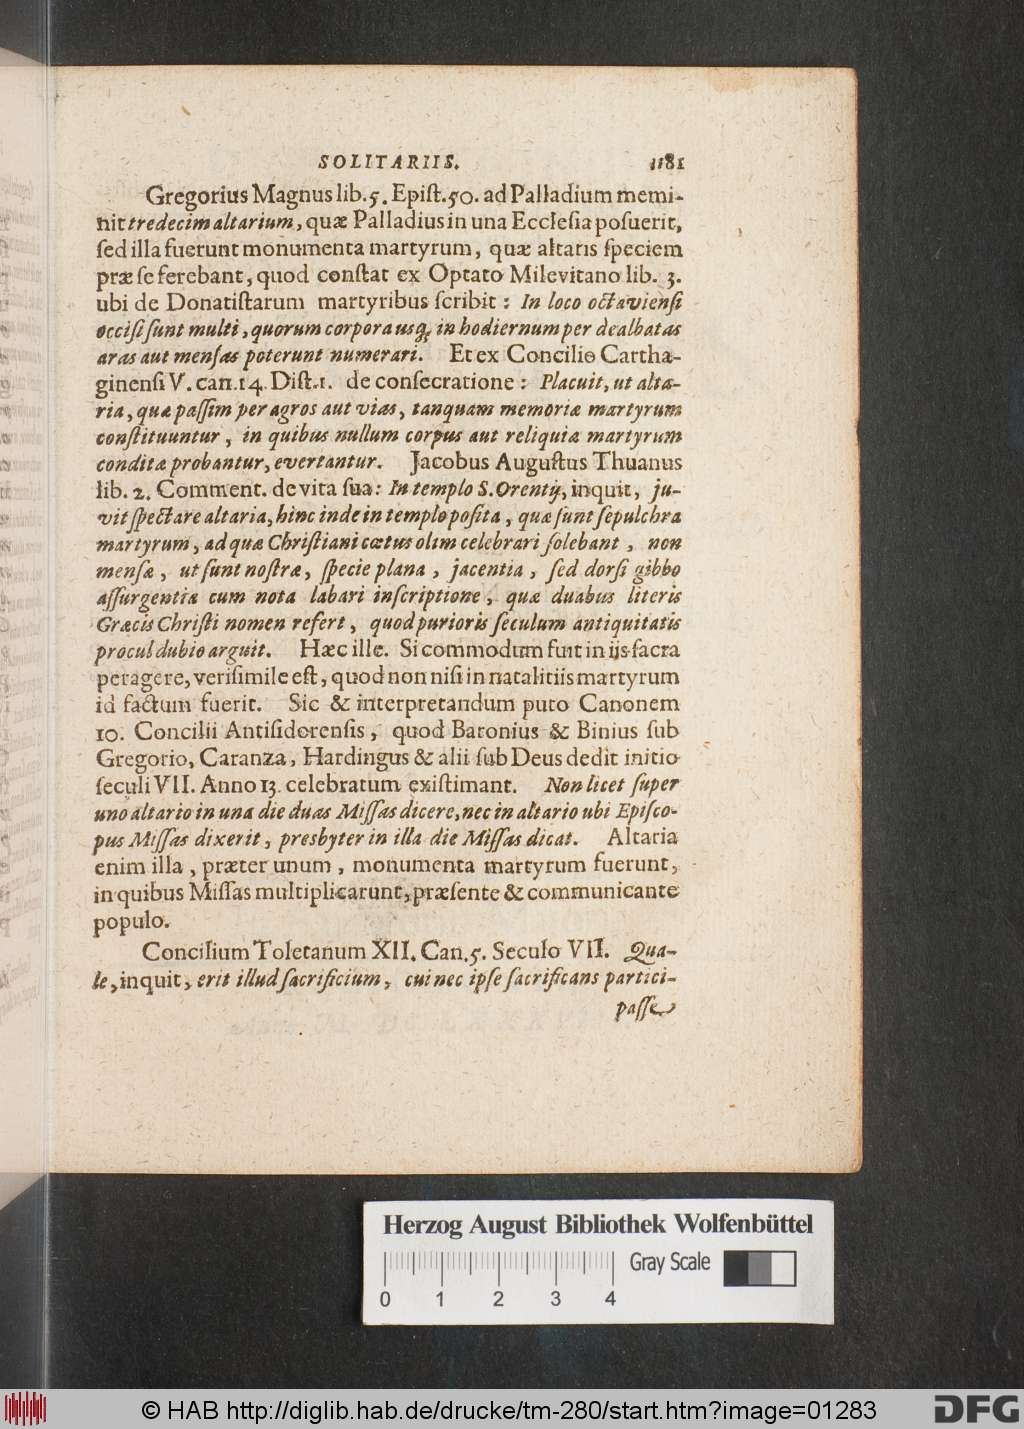 SOLITARIIS. 1181
Gregorius Magnus lib. 5. Epiſt. 50. ad Palladium memi-
nit tredecim altarium, quæ Palladius in una Eccleſia poſuerit,
ſed illa fuerunt monumenta martyrum, quæ altaris ſpeciem
præ ſe ferebant, quod conſtat ex Optato Milevitano lib. 3.
ubi de Donatiſtarum martyribus ſcribit: In loco octavienſi
occiſi ſunt multi, quorum corpora usq; in hodiernum per dealbatas
aras aut menſas poterunt numerari. Et ex Concilio Cartha-
ginenſi V. can. 14. Diſt. 1. de conſecratione: Placuit, ut alta-
ria, quæ paſſim per agros aut vias, tanquam memoriæ martyrum
conſtituuntur, in quibus nullum corpus aut reliquiæ martyrum
conditæ probantur, evertantur. Jacobus Auguſtus Thuanus
lib. 2. Comment. de vita ſua: In templo S. Orentij, inquit, ju-
vit ſpectare altaria, hinc inde in templo poſita, quæ ſunt ſepulchra
martyrum, ad quæ Chriſtiani cœtus olim celebrari ſolebant, non
menſæ, ut ſunt noſtræ, ſpecie plana, jacentia, ſed dorſi gibbo
aſſurgentia cum nota labari inſcriptione, quæ duabus literis
Græcis Chriſti nomen refert, quod purioris ſeculum antiquitatis
procul dubio arguit. Hæc ille. Si commodum fuit in iis ſacra
peragere, veriſimile eſt, quod non niſi in natalitiis martyrum
id factum fuerit. Sic & interpretandum puto Canonem
10. Concilii Antiſidorenſis, quod Baronius & Binius ſub
Gregorio, Caranza, Hardingus & alii ſub Deus dedit initio
ſeculi VII. Anno 13. celebratum exiſtimant. Non licet ſuper
uno altario in una die duas Miſſas dicere, nec in altario ubi Epiſco-
pus Miſſas dixerit, presbyter in illa die Miſſas dicat. Altaria
enim illa, præter unum, monumenta martyrum fuerunt,
in quibus Miſſas multiplicarunt, præſente & communicante
populo.
Concilium Toletanum XII. Can. 5. Seculo VII. Qua-
le, inquit, erit illud ſacrificium, cui nec ipſe ſacrificans partici-
paſſe
Herzog August Bibliothek Wolfenbüttel
Gray Scale
0 1 2 3 4
© HAB http://diglib.hab.de/drucke/tm-280/start.htm?image=01283
DFG